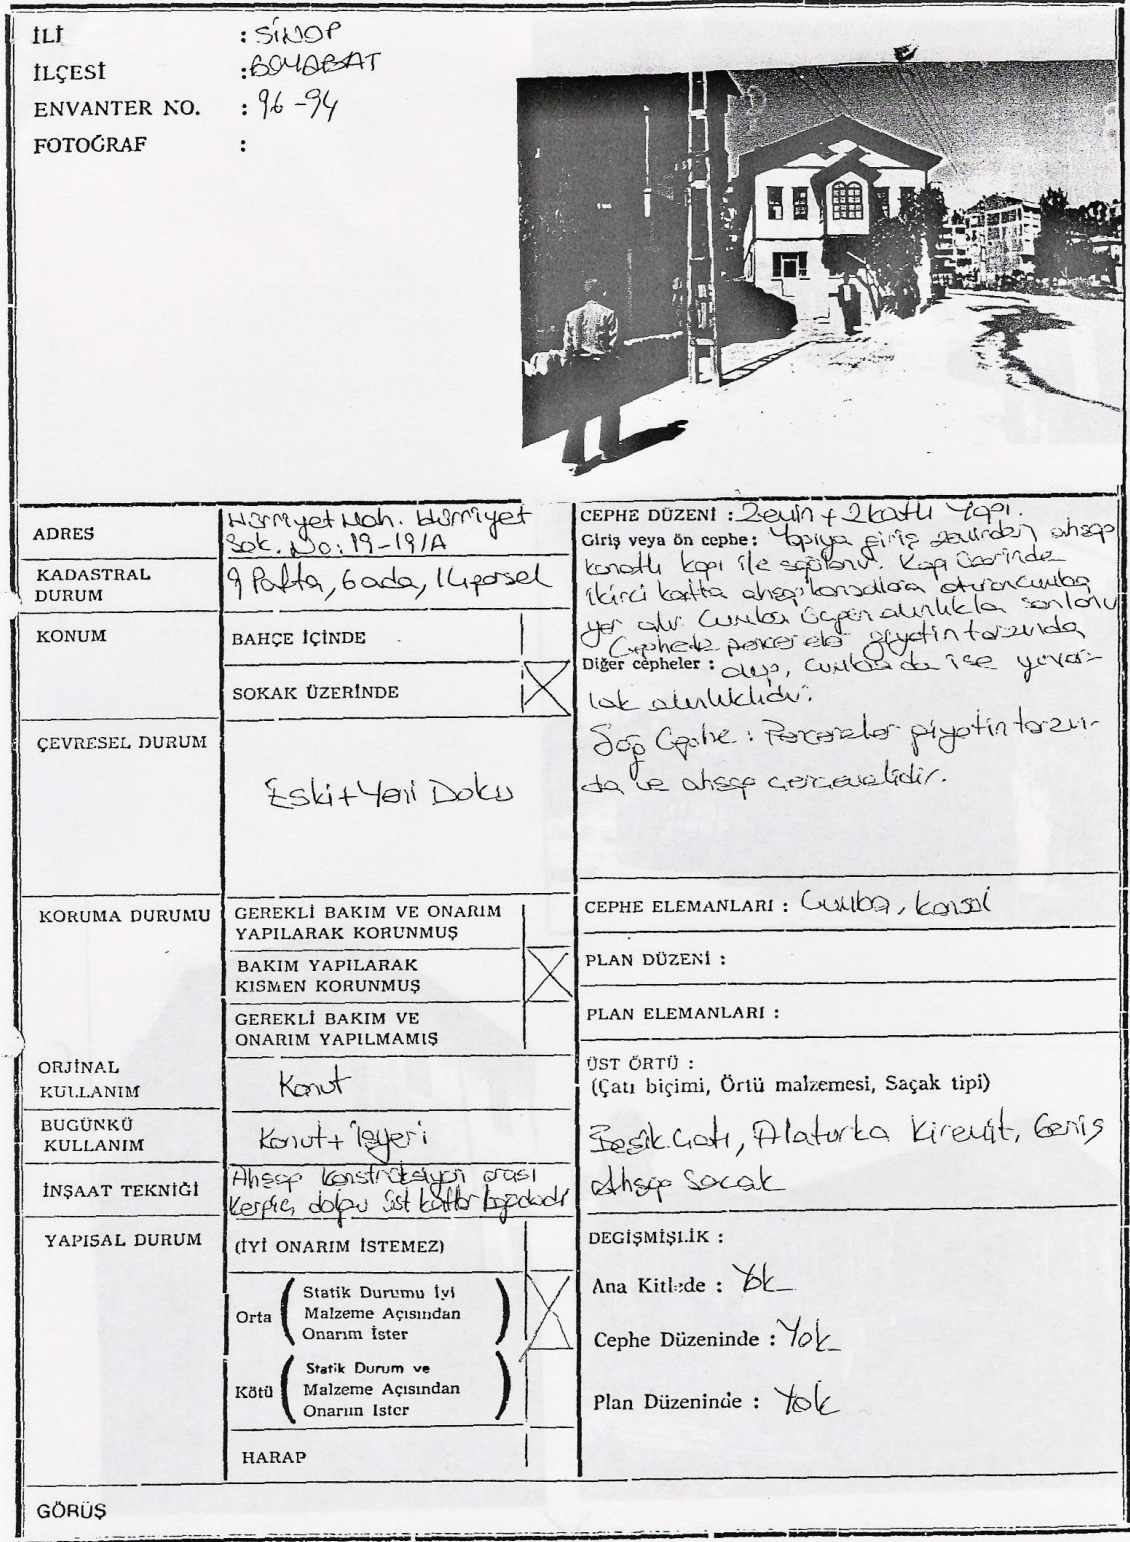 İLİ : SİNOP
İLÇESİ : BOYABAT
ENVANTER NO. : 96-94
FOTOĞRAF :
ADRES
Hürriyet Mah. Hürriyet
Sok. No: 19-19/A
KADASTRAL
DURUM
9 Pafta, 6 ada, 14 parsel
KONUM
BAHÇE İÇİNDE
SOKAK ÜZERİNDE
ÇEVRESEL DURUM
Eski + Yeni Doku
KORUMA DURUMU
GEREKLİ BAKIM VE ONARIM
YAPILARAK KORUNMUŞ
BAKIM YAPILARAK
KISMEN KORUNMUŞ
GEREKLİ BAKIM VE
ONARIM YAPILMAMIŞ
ORJİNAL
KULLANIM
Konut
BUGÜNKÜ
KULLANIM
Konut + İşyeri
İNŞAAT TEKNİĞİ
Ahşap konstrüksiyon arası
Kerpiç dolgu üst katlar
YAPISAL DURUM
(İYİ ONARIM İSTEMEZ)
Orta (Statik Durumu İyi
Malzeme Açısından
Onarım İster)
Kötü (Statik Durum ve
Malzeme Açısından
Onarım İster)
HARAP
CEPHE DÜZENİ : Zemin + 2 katlı Yapı.
Giriş veya ön cephe : Yapıya giriş zeminden ahşap
kanatlı kapı ile sağlanır. Kapı üzerinde
ikinci katta ahşap konsollara oturan cumba
yer alır. Cumba üçgen alınlıkla sonlanır
Cephede pencereler giyotin tarzında
Diğer cepheler : olup, cumbada ise yuvar-
lak alınlıklıdır.
Sağ Cephe : Pencereler giyotin tarzın-
da ve ahşap çerçevelidir.
CEPHE ELEMANLARI : Cumba, konsol
PLAN DÜZENİ :
PLAN ELEMANLARI :
ÜST ÖRTÜ :
(Çatı biçimi, Örtü malzemesi, Saçak tipi)
Beşik Çatı, Alaturka Kiremit, Geniş
Ahşap Saçak
DEĞİŞMİŞLİK :
Ana Kitlede : Yok
Cephe Düzeninde : Yok
Plan Düzeninde : Yok
GÖRÜŞ